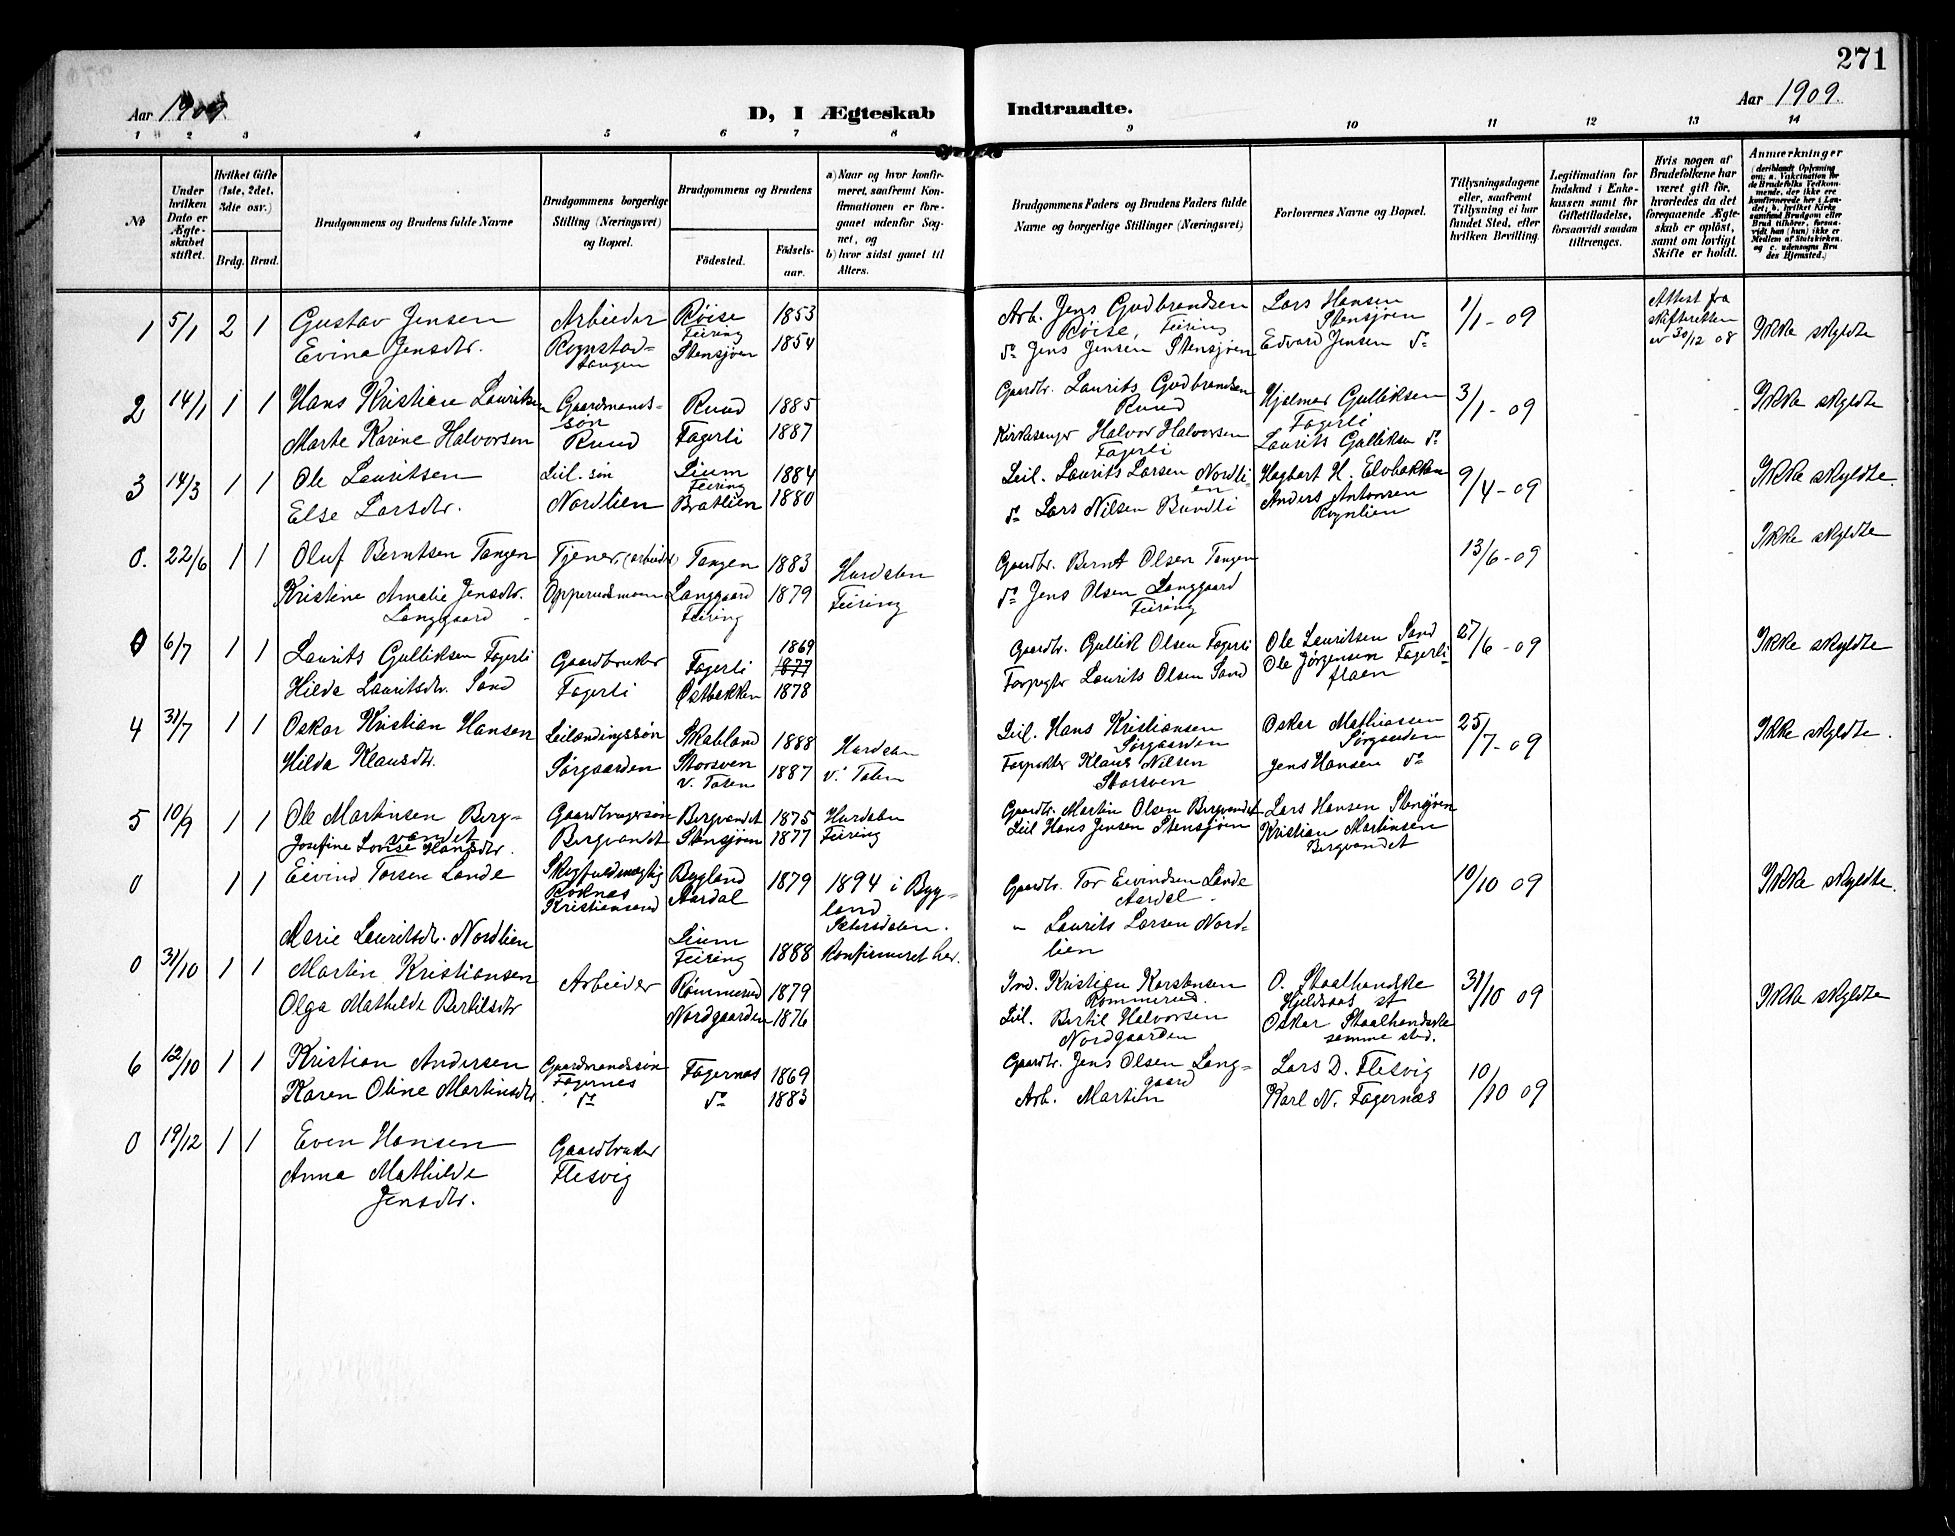 271
Aar 1909.
D, I Ægteskab Indtraadte.
Aar 1909.
1 2 3 4 5 6 7 8 9 10 11 12 13 14
№
Under hvilken Dato er Ægteskabet stiftet.
Hvilket Gifte (1ste, 2det, 3die osv.)
Brdg. Brud.
Brudgommens og Brudens fulde Navne
Brudgommens borgerlige Stilling (Næringsvei) og Bopæl.
Brudgommens og Brudens
Fødested.
Fødselsaar.
a) Naar og hvor konfirmeret, saafremt Konfirmationen er foregaaet udenfor Sognet, og
b) hvor sidst gaaet til Alters.
Brudgommens Faders og Brudens Faders fulde Navne og borgerlige Stillinger (Næringsvei)
Forlovernes Navne og Bopæl.
Tillysningsdagene eller, saafremt Tillysning ei har fundet Sted, efter hvilken Bevilling.
Legitimation for Indskud i Enkekassen samt for Giftetilladelse, forsaavidt saadan tiltrænges.
Hvis nogen af Brudefolkene har været gift før, hvorledes da det foregaaende Ægteskab er opløst, samt om lovligt Skifte er holdt.
Anmærkninger
(deriblandt Oplysning om: a. Vakcination for de Brudefolks Vedkommende, der ikke ere konfirmerede her i Landet; b. hvilket Kirkesamfund Brudgom eller Brud tilhører, forsaavidt han (hun) ikke er Medlem af Statskirken, og c. udensogns Brudes Hjemsted.)
1 5/1 2 1 Gustav Jensen Arbeider Røise Feiring 1853 Arb. Jens Gudbrandsen Røise, Feiring Lars Hansen Stensjøen 1/1-09 Attest fra skifteretten av 30/12 08 Ikke skyldte
Evina Jensdtr. Rognstadtangen Stensjøen 1854 do Jens Jensen Stensjøen Edvard Jensen do
2 14/1 1 1 Hans Kristian Lauritsen Gaardmandssøn Ruud 1885 Gaardbr. Laurits Gudbrandsen Ruud Hjalmar Gulliksen Fagerli 3/1-09 Ikke skyldte
Marte Karine Halvorsen Ruud Fagerli 1887 Kirkesanger Halvor Halvorsen Fagerli Laurits Gulliksen do
3 14/3 1 1 Ole Lauritsen Leil. søn Lium Feiring 1884 Leil. Laurits Larsen Nordlien Hagbart H. Elvbakken 9/4-09 Ikke skyldte.
Else Larsdtr. Nordlien Bratlien 1880 do Lars Nilsen Bundli Anders Antonsen Rognlien
0. 22/6 1 1 Oluf Berntsen Tangen Tjener, (arbeider) Tangen 1883 Hurdalen Gaardbr. Bernt Olsen Tangen 13/6-09 Ikke skyldte
Kristine Amalie Jensdtr. Langgaard Opperudsmoen Langgaard Feiring 1879 Feiring do Jens Olsen Langgaard Feiring
0 6/7 1 1 Laurits Gulliksen Fagerli Gaardbruker Fagerli 1869 1877 Gaardbr. Gullik Olsen Fagerli Ole Lauritsen Sand 27/6-09 Ikke skyldte
Hilda Lauritsdtr. Sand Fagerli Østbakken 1878 Forpagter Laurits Olsen Sand Ole Jørgensen Fagerliflaen
4 31/7 1 1 Oskar Kristian Hansen Leilændingssøn Skabland 1888 Hurdalen Leil. Hans Kristiansen Sørgaarden Oskar Mathiassen Sørgaarden 25/7-09 Ikke skyldte.
Hilda Klausdtr. Sørgaarden Storsven v. Toten 1887 v. Toten Forpakter Klaus Nilsen Storsven Jens Hansen do
5 10/9 1 1 Ole Martinsen Bergvandet Gaardbrugersøn Bergvandet 1875 Hurdalen Gaardbr. Martin Olsen Bergvandet Lars Hansen Stensjøen
Josefine Lovise Hansdtr. Bergvandet Stensjøen 1877 Feiring Leil Hans Jensen Stensjøen Kristian Martinsen Bergvandet
0 1 1 Eivind Torsen Lande Skogfuldmægtig Kristiansand Bygland Aardal 1879 1894 i Bygland Sætersdalen. Gaardbr. Tor Eivindsen Lande Aardal 10/10 09 Ikke skyldte.
Marie Lauritsdtr. Nordlien Lium Feiring 1888 Konfirmeret her. " Laurits Larsen Nordlien
0 31/10 1 1 Martin Kristiansen Arbeider Rømmerud 1879 Ind. Kristian Karstensen Rømmerud. O. Staalhandske Hjeldsaas st 31/10 09 Ikke skyldte
Olga Mathilde Bertilsdtr Nordgaarden 1876 Leil. Bertil Halvorsen Nordgaarden Oskar Staalhandske samme sted.
6 12/10 1 1 Kristian Andersen Gaardmandssøn Fagernes Fagernes 1869 Gaardbr. Jens Olsen Langgaard Lars D. Flesvig 10/10 09
Karen Oline Martinsdtr. do do 1883 Arb. Martin Karl N. Fagernæs
0 19/12 1 1 Even Hansen Gaardbruker
Anna Mathilde Jensdtr. Flesvig